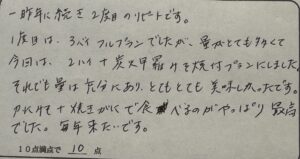 一昨年に続き2度目のリピートです。
1度目は、3パイフルプランでしたが、量がとても多くて
今回は、2ハイ+炭火甲羅みそ焼付プランにしました。
それでも量は充分にあり、とてもとても美味しかったです。
カニすき+焼きがにで食べるのがやっぱり最高
でした。毎年来たいです。
10点満点で 10 点